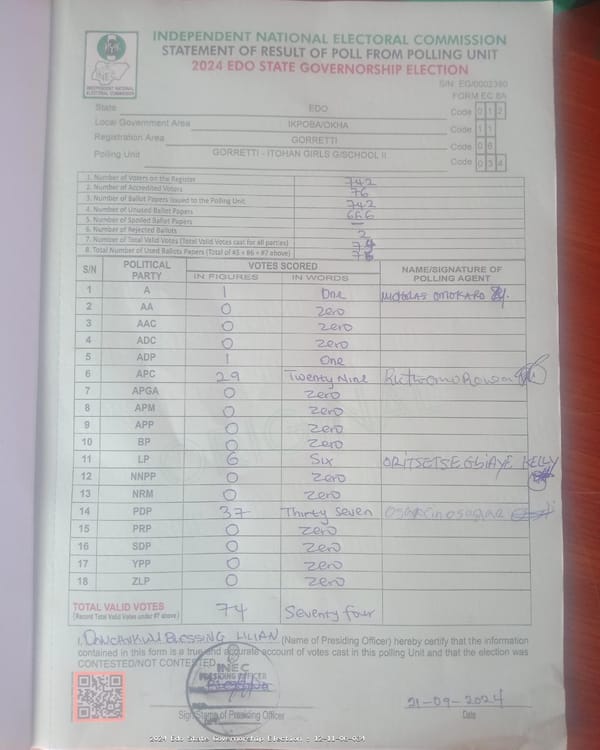 INDEPENDENT NATIONAL ELECTORAL COMMISSION
STATEMENT OF RESULT OF POLL FROM POLLING UNIT
2024 EDO STATE GOVERNORSHIP ELECTION
INEC
INDEPENDENT NATIONAL
ELECTORAL COMMISSION
S/N: EG/0002390
FORM EC 8A
State EDO Code 0 1 2
Local Government Area IKPOBA/OKHA Code 1 1
Registration Area GORRETTI Code 0 6
Polling Unit GORRETTI - ITOHAN GIRLS G/SCHOOL II Code 0 3 4
1. Number of Voters on the Register 742
2. Number of Accredited Voters 76
3. Number of Ballot Papers Issued to the Polling Unit 742
4. Number of Unused Ballot Papers 666
5. Number of Spoiled Ballot Papers —
6. Number of Rejected Ballots 2
7. Number of Total Valid Votes (Total Valid Votes cast for all parties) 74
8. Total Number of Used Ballots Papers (Total of #5 + #6 + #7 above) 76
S/N POLITICAL PARTY VOTES SCORED NAME/SIGNATURE OF POLLING AGENT
IN FIGURES IN WORDS
1 A 1 One OMOKARO
2 AA 0 Zero
3 AAC 0 Zero
4 ADC 0 Zero
5 ADP 1 One
6 APC 29 Twenty Nine
7 APGA 0 Zero
8 APM 0 Zero
9 APP 0 Zero
10 BP 0 Zero
11 LP 6 Six KELLY
12 NNPP 0 Zero
13 NRM 0 Zero
14 PDP 37 Thirty Seven
15 PRP 0 Zero
16 SDP 0 Zero
17 YPP 0 Zero
18 ZLP 0 Zero
TOTAL VALID VOTES 74 Seventy four
(Record Total Valid Votes under #7 above)
I, BLESSING LILIAN (Name of Presiding Officer) hereby certify that the information
contained in this form is a true and accurate account of votes cast in this polling Unit and that the election was
CONTESTED/NOT CONTESTED
INEC
PRESIDING OFFICER
Sign/Stamp of Presiding Officer
21-09-2024
Date
2024 Edo State Governorship Election : 12-11-06-034